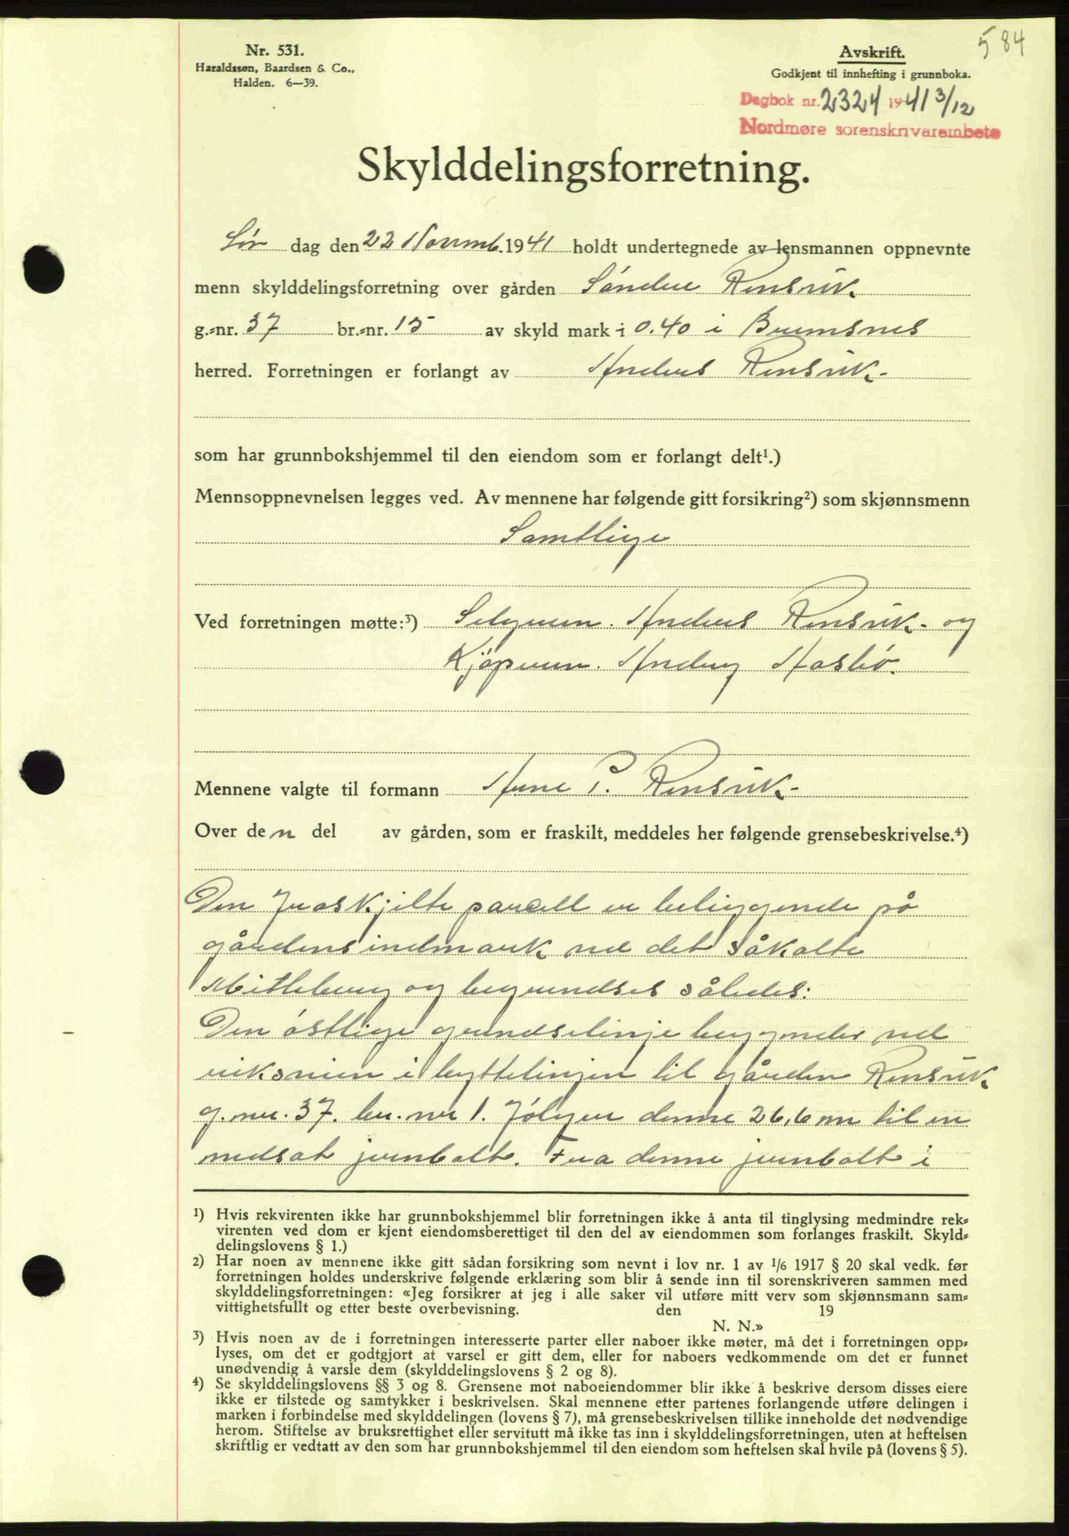 584
Nr. 531.
Haraldssøn, Baardsen & Co.,
Halden. 6—39.
Avskrift.
Godkjent til innhefting i grunnboka.
Dagbok nr. 2324 1941 3/12
Nordmøre sorenskriverembete
Skylddelingsforretning.
Lør dag den 22 Novemb. 1941 holdt undertegnede av lensmannen oppnevnte
menn skylddelingsforretning over gården Söndre Rensvik
g.-nr. 37 br.-nr. 15 av skyld mark 0.40 i Bremsnes
herred. Forretningen er forlangt av Anders Rensvik.
som har grunnbokshjemmel til den eiendom som er forlangt delt¹.)
Mennsoppnevnelsen legges ved. Av mennene har følgende gitt forsikring²) som skjønnsmenn
Samtlige
Ved forretningen møtte:³) Selgeren. Anders Rensvik. og
Kjøperen. Aasbø.
Mennene valgte til formann Arne P. Rensvik.
Over den del av gården, som er fraskilt, meddeles her følgende grensebeskrivelse.⁴)
Den fraskjilte parcell er beliggende på
gårdens indmark ved det såkalte
og begrendses således:
Den östlige grendselinje begynder ved
veiksnien i byttelinjen til gården Rensvik
g. nr. 37. br. nr 1. følger denne 26,6 m til en
nedsat jernbolt. Fra denne jernbolt i
¹) Hvis rekvirenten ikke har grunnbokshjemmel blir forretningen ikke å anta til tinglysing medmindre rek-
virenten ved dom er kjent eiendomsberettiget til den del av eiendommen som forlanges fraskilt. Skyld-
delingslovens § 1.)
²) Har noen av mennene ikke gitt sådan forsikring som nevnt i lov nr. 1 av 1/6 1917 § 20 skal vedk. før
forretningen holdes underskrive følgende erklæring som blir å sende inn til sorenskriveren sammen med
skylddelingsforretningen: «Jeg forsikrer at jeg i alle saker vil utføre mitt verv som skjønnsmann sam-
vittighetsfullt og etter beste overbevisning. den 19
N. N.»
³) Hvis noen av de i forretningen interesserte parter eller naboer ikke møter, må det i forretningen opp-
lyses, om det er godtgjort at varsel er gitt dem, eller for naboers vedkommende om det er funnet
unødvendig å varsle dem (skylddelingslovens § 2 og 8).
⁴) Se skylddelingslovens §§ 3 og 8. Grensene mot naboeiendommer blir ikke å beskrive dersom disses eiere
ikke er tilstede og samtykker i beskrivelsen. Skal mennene etter partenes forlangende utføre delingen i
marken i forbindelse med skylddelingen (lovens § 7), må grensebeskrivelsen tillike inneholde det nødvendige
herom. Stiftelse av bruksrettighet eller servitutt må ikke tas inn i skylddelingsforretningen, uten at heftelsen
skriftlig er vedtatt av den som har grunnbokshjemmel til den eiendom som heftelsen skal hvile på (lovens § 5).